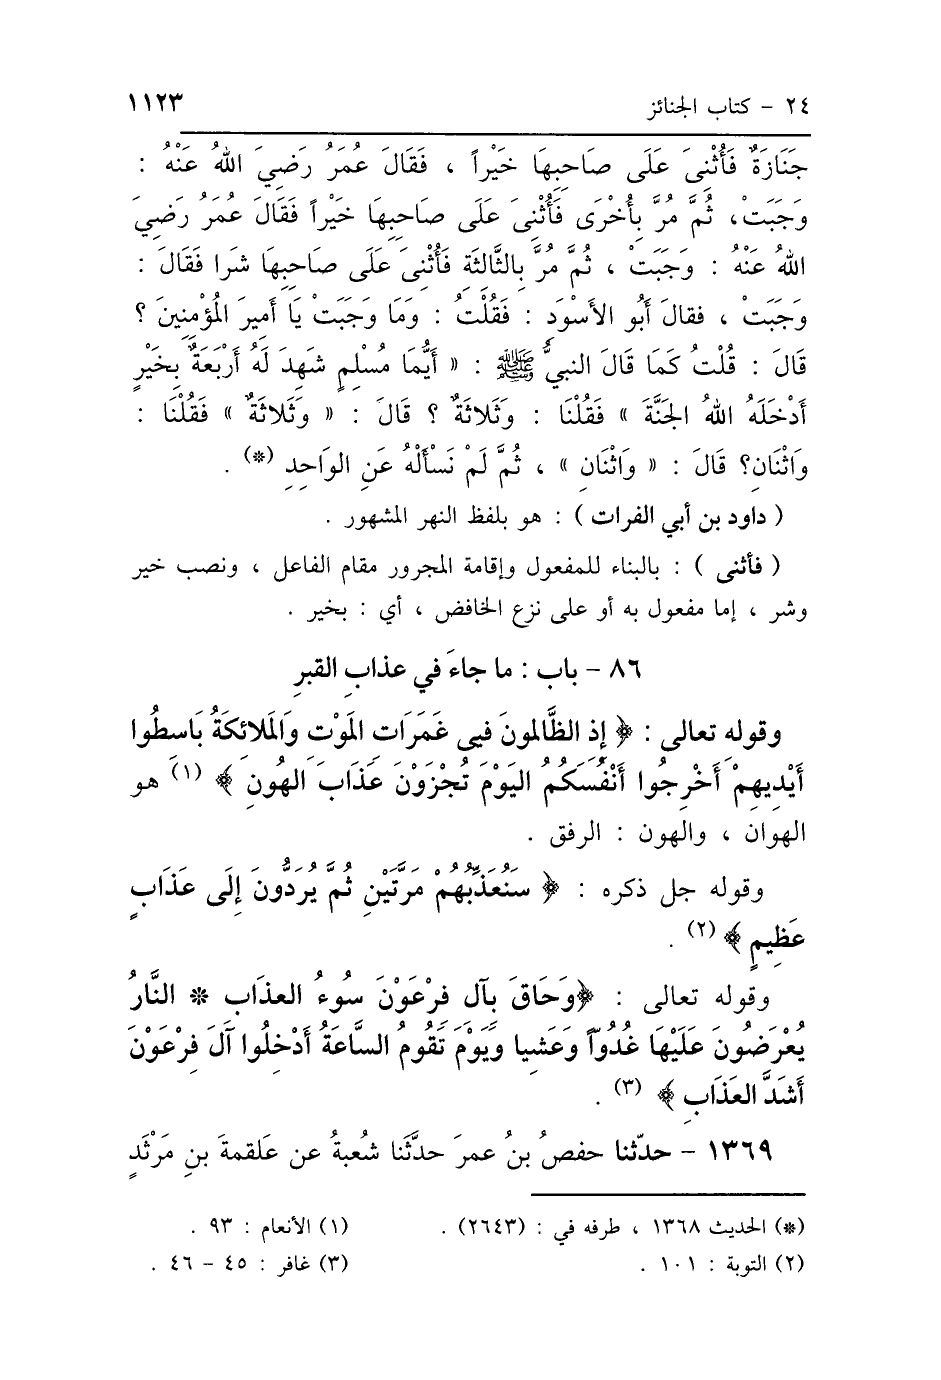 ٢٤ - كتاب الجنائز ١١٢٣
جَنَازَةٌ فَأُثْنِيَ عَلَى صَاحِبِهَا خَيْراً ، فَقَالَ عُمَرُ رَضِيَ اللهُ عَنْهُ :
وَجَبَتْ، ثُمَّ مُرَّ بِأُخْرَى فَأُثْنِيَ عَلَى صَاحِبِهَا خَيْراً فَقَالَ عُمَرُ رَضِيَ
اللهُ عَنْهُ : وَجَبَتْ ، ثُمَّ مُرَّ بِالثَّالِثَةِ فَأُثْنِيَ عَلَى صَاحِبِهَا شَرا فَقَالَ :
وَجَبَتْ ، فقالَ أَبُو الأَسْوَدِ : فَقُلْتُ : وَمَا وَجَبَتْ يَا أَمِيرَ المُؤْمِنِينَ ؟
قَالَ : قُلْتُ كَمَا قَالَ النبيُّ ﷺ : « أَيُّمَا مُسْلِمٍ شَهِدَ لَهُ أَرْبَعَةٌ بِخَيْرٍ
أَدْخَلَهُ اللهُ الجَنَّةَ » فَقُلْنَا : وَثَلاثَةٌ ؟ قَالَ : « وَثَلاثَةٌ » فَقُلْنَا :
وَاثْنَانِ؟ قَالَ : « وَاثْنَانِ » ، ثُمَّ لَمْ نَسْأَلْهُ عَنِ الوَاحِدِ (*) .
( داود بن أبي الفرات ) : هو بلفظ النهر المشهور .
( فأثنى ) : بالبناء للمفعول وإقامة المجرور مقام الفاعل ، ونصب خير
وشر ، إما مفعول به أو على نزع الخافض ، أي : بخير .
٨٦ - باب : ما جاءَ في عذابِ القبرِ
وقولِه تعالى : ﴿ إِذِ الظَّالِمونَ فيى غَمَرَاتِ المَوْتِ وَالمَلائِكَةُ بَاسِطُوا
أَيْدِيهِمْ أَخْرِجُوا أَنْفُسَكُمُ اليَوْمَ تُجْزَوْنَ عَذَابَ الهُونِ ﴾ (١) هو
الهوان ، والهون : الرفق .
وقوله جل ذكره : ﴿ سَنُعَذِّبُهُمْ مَرَّتَيْنِ ثُمَّ يُرَدُّونَ إِلَى عَذَابٍ
عَظِيمٍ ﴾ (٢) .
وقوله تعالى : ﴿وَحَاقَ بِآلِ فِرْعَوْنَ سُوءُ العذَابِ * النَّارُ
يُعْرَضُونَ عَلَيْهَا غُدُوّاً وَعَشِيا وَيَوْمَ تَقُومُ السَّاعَةُ أَدْخِلُوا آلَ فِرْعَوْنَ
أَشَدَّ العَذَابِ ﴾ (٣) .
١٣٦٩ - حدّثنا حفصُ بنُ عمرَ حدَّثَنا شُعبةُ عن عَلقمةَ بنِ مَرْثَدٍ
(*) الحديث ١٣٦٨ ، طرفه في : (٢٦٤٣) . (١) الأنعام : ٩٣ .
(٢) التوبة : ١٠١ . (٣) غافر : ٤٥ - ٤٦ .